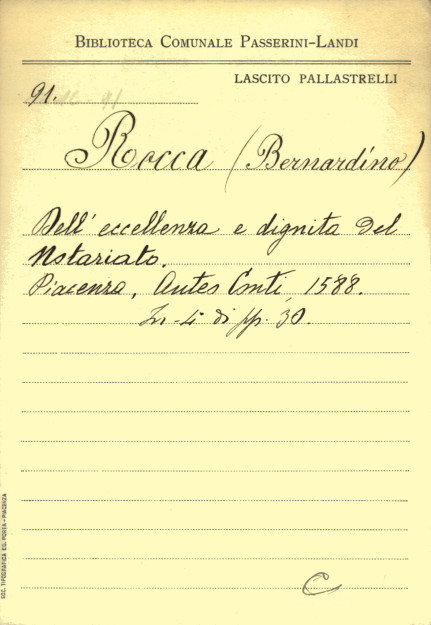 BIBLIOTECA COMUNALE PASSERINI-LANDI
LASCITO PALLASTRELLI
91.
Rocca (Bernardino)
Dell' eccellenza e dignità del
Notariato.
Piacenza, Anteo Conti, 1588.
In-4 di pp. 30.
C
SOC. TIPOGRAFICA ED. PORTA - PIACENZA